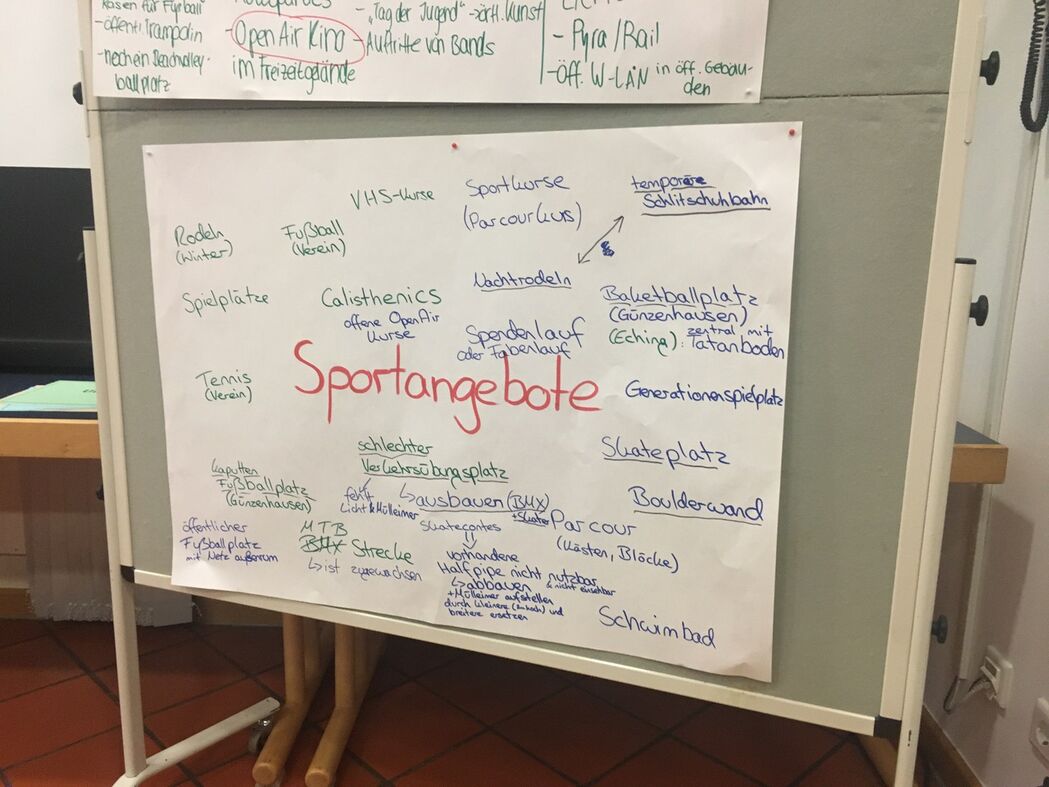 Rasen für Fußball
- öffentl. Trampolin
- Open Air Kino
im Freizeitgelände
- „Tag der Jugend"
örtl. Kunst
- Auftritte von Bands
- Pyra/Rail
- Öff. W-LAN in öff. Gebäu-
den
ballplatz
VHS-Kurse
Sportkurse
(Parcourkurs)
temporäre
Schlitschuhbahn
Rodeln
(Winter)
Fußball
(Verein)
Nachtrodeln
Spielplätze
Calisthenics
offene OpenAir
Kurse
Spendenlauf
oder Fabenlauf
Baketballplatz
(Günzenhausen)
(Eching): zentral, mit
Tatanboden
Tennis
(Verein)
Sportangebote
Generationenspielplatz
schlechter
Verkehrsübungsplatz
fehlt
Licht & Mülleimer
↳ ausbauen (BMX)
+ Skater
Skatecontes
Skateplatz
Boulderwand
kaputten
Fußballplatz
(Günzenhausen)
öffentlicher
Fußballplatz
mit Netz außenrum
MTB
BMX Strecke
↳ ist zugewachsen
Parcour
(Kästen, Blöcke)
vorhandene
Halfpipe nicht nutzbar
& nicht einsehbar
↳ abbauen
+ Mülleimer aufstellen
durch kleinere
und
breitere ersetzen
Schwimbad